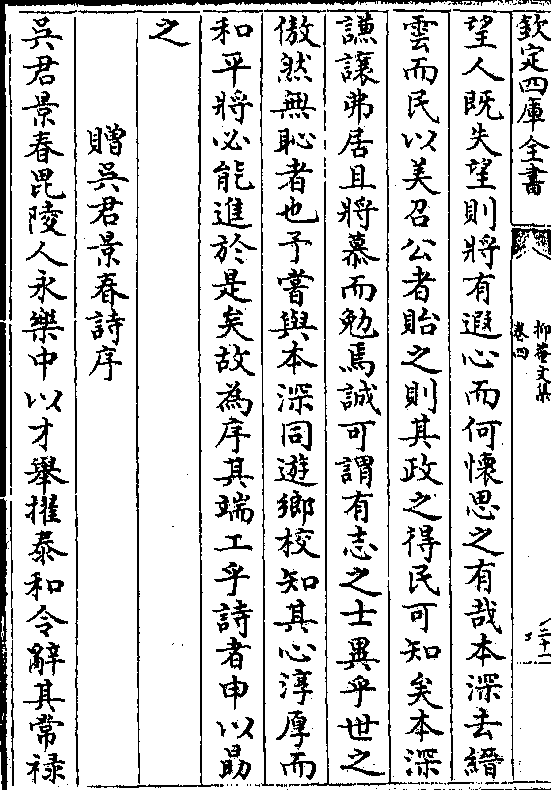 欽定四庫全書
抑菴文集
卷四
二十一
望人既失望則將有遐心而何懷思之有哉本深去縉
雲而民以美召公者貽之則其政之得民可知矣本深
謙讓弗居且將慕而勉焉誠可謂有志之士異乎世之
傲然無恥者也予嘗與本深同遊鄉校知其心淳厚而
和平將必能進於是矣故為序其端工乎詩者申以勗
之
贈吳君景春詩序
吳君景春毘陵人永樂中以才舉擢泰和令辭其常祿